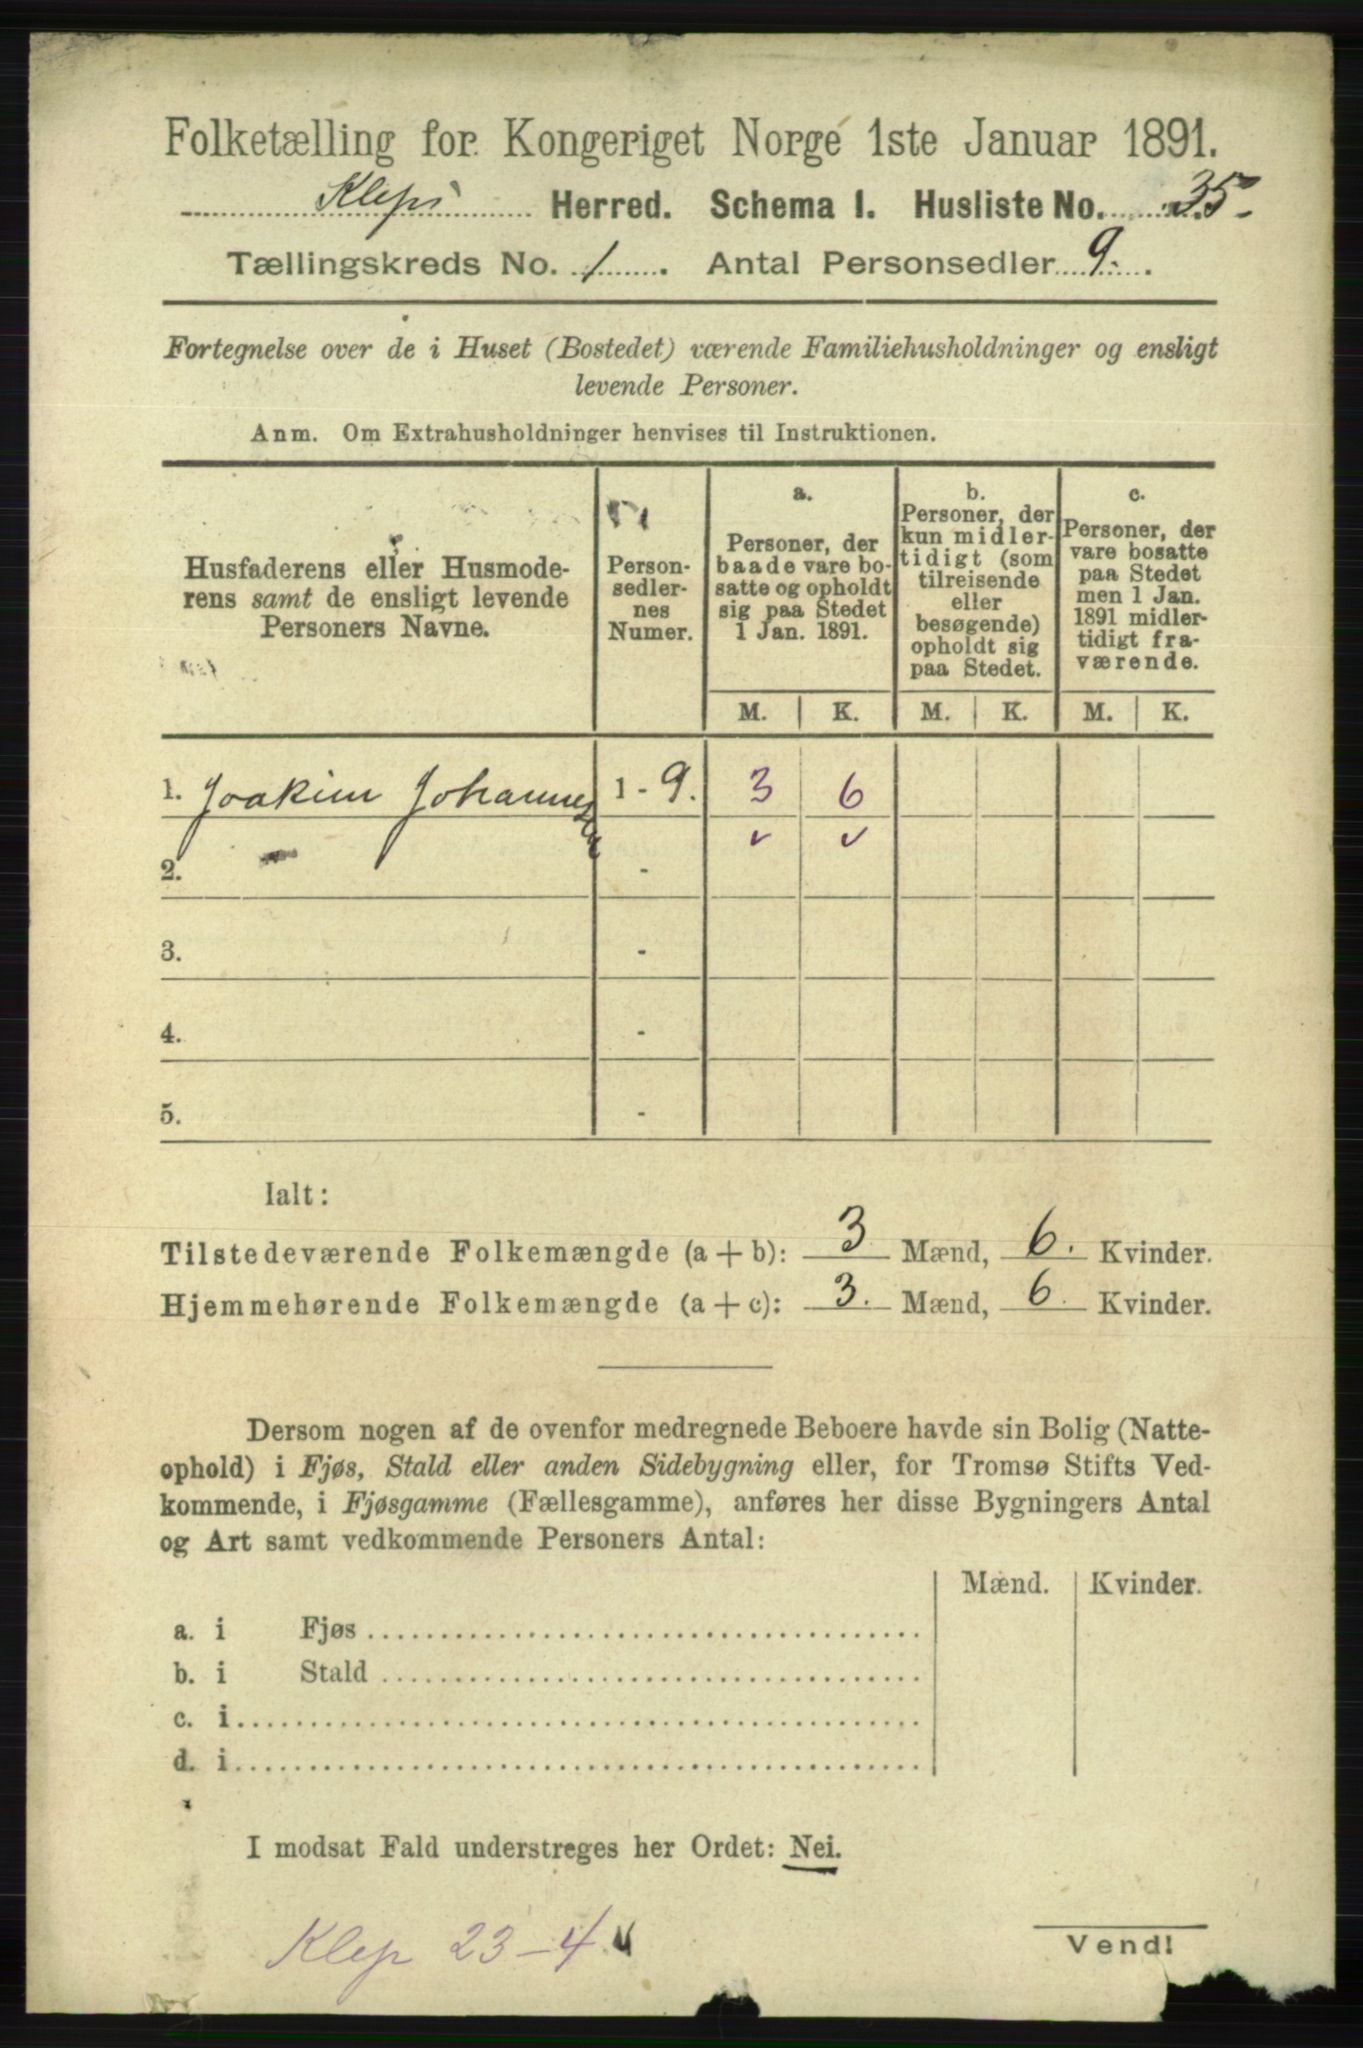 Folketælling for Kongeriget Norge 1ste Januar 1891.
Klepp Herred. Schema I. Husliste No. 35
Tællingskreds No. 1. Antal Personsedler 9.
Fortegnelse over de i Huset (Bostedet) værende Familiehusholdninger og ensligt
levende Personer.
Anm. Om Extrahusholdninger henvises til Instruktionen.
Husfaderens eller Husmode-
rens samt de ensligt levende
Personers Navne.
Person-
sedler-
nes
Numer.
a.
Personer, der
baade vare bo-
satte og opholdt
sig paa Stedet
1 Jan. 1891.
b.
Personer, der
kun midler-
tidigt (som
tilreisende
eller
besøgende)
opholdt sig
paa Stedet.
c.
Personer, der
vare bosatte
paa Stedet
men 1 Jan.
1891 midler-
tidigt fra-
værende.
M. K. M. K. M. K.
1. Joakim Johannessen 1 - 9. 3 6
✓ ✓
2. -
3. -
4. -
5. -
Ialt:
Tilstedeværende Folkemængde (a + b): 3 Mænd, 6. Kvinder.
Hjemmehørende Folkemængde (a + c): 3. Mænd, 6. Kvinder.
Dersom nogen af de ovenfor medregnede Beboere havde sin Bolig (Natte-
ophold) i Fjøs, Stald eller anden Sidebygning eller, for Tromsø Stifts Ved-
kommende, i Fjøsgamme (Fællesgamme), anføres her disse Bygningers Antal
og Art samt vedkommende Personers Antal:
Mænd. Kvinder.
a. i Fjøs
b. i Stald
c. i
d. i
I modsat Fald understreges her Ordet: Nei.
Klep 23-4
Vend!